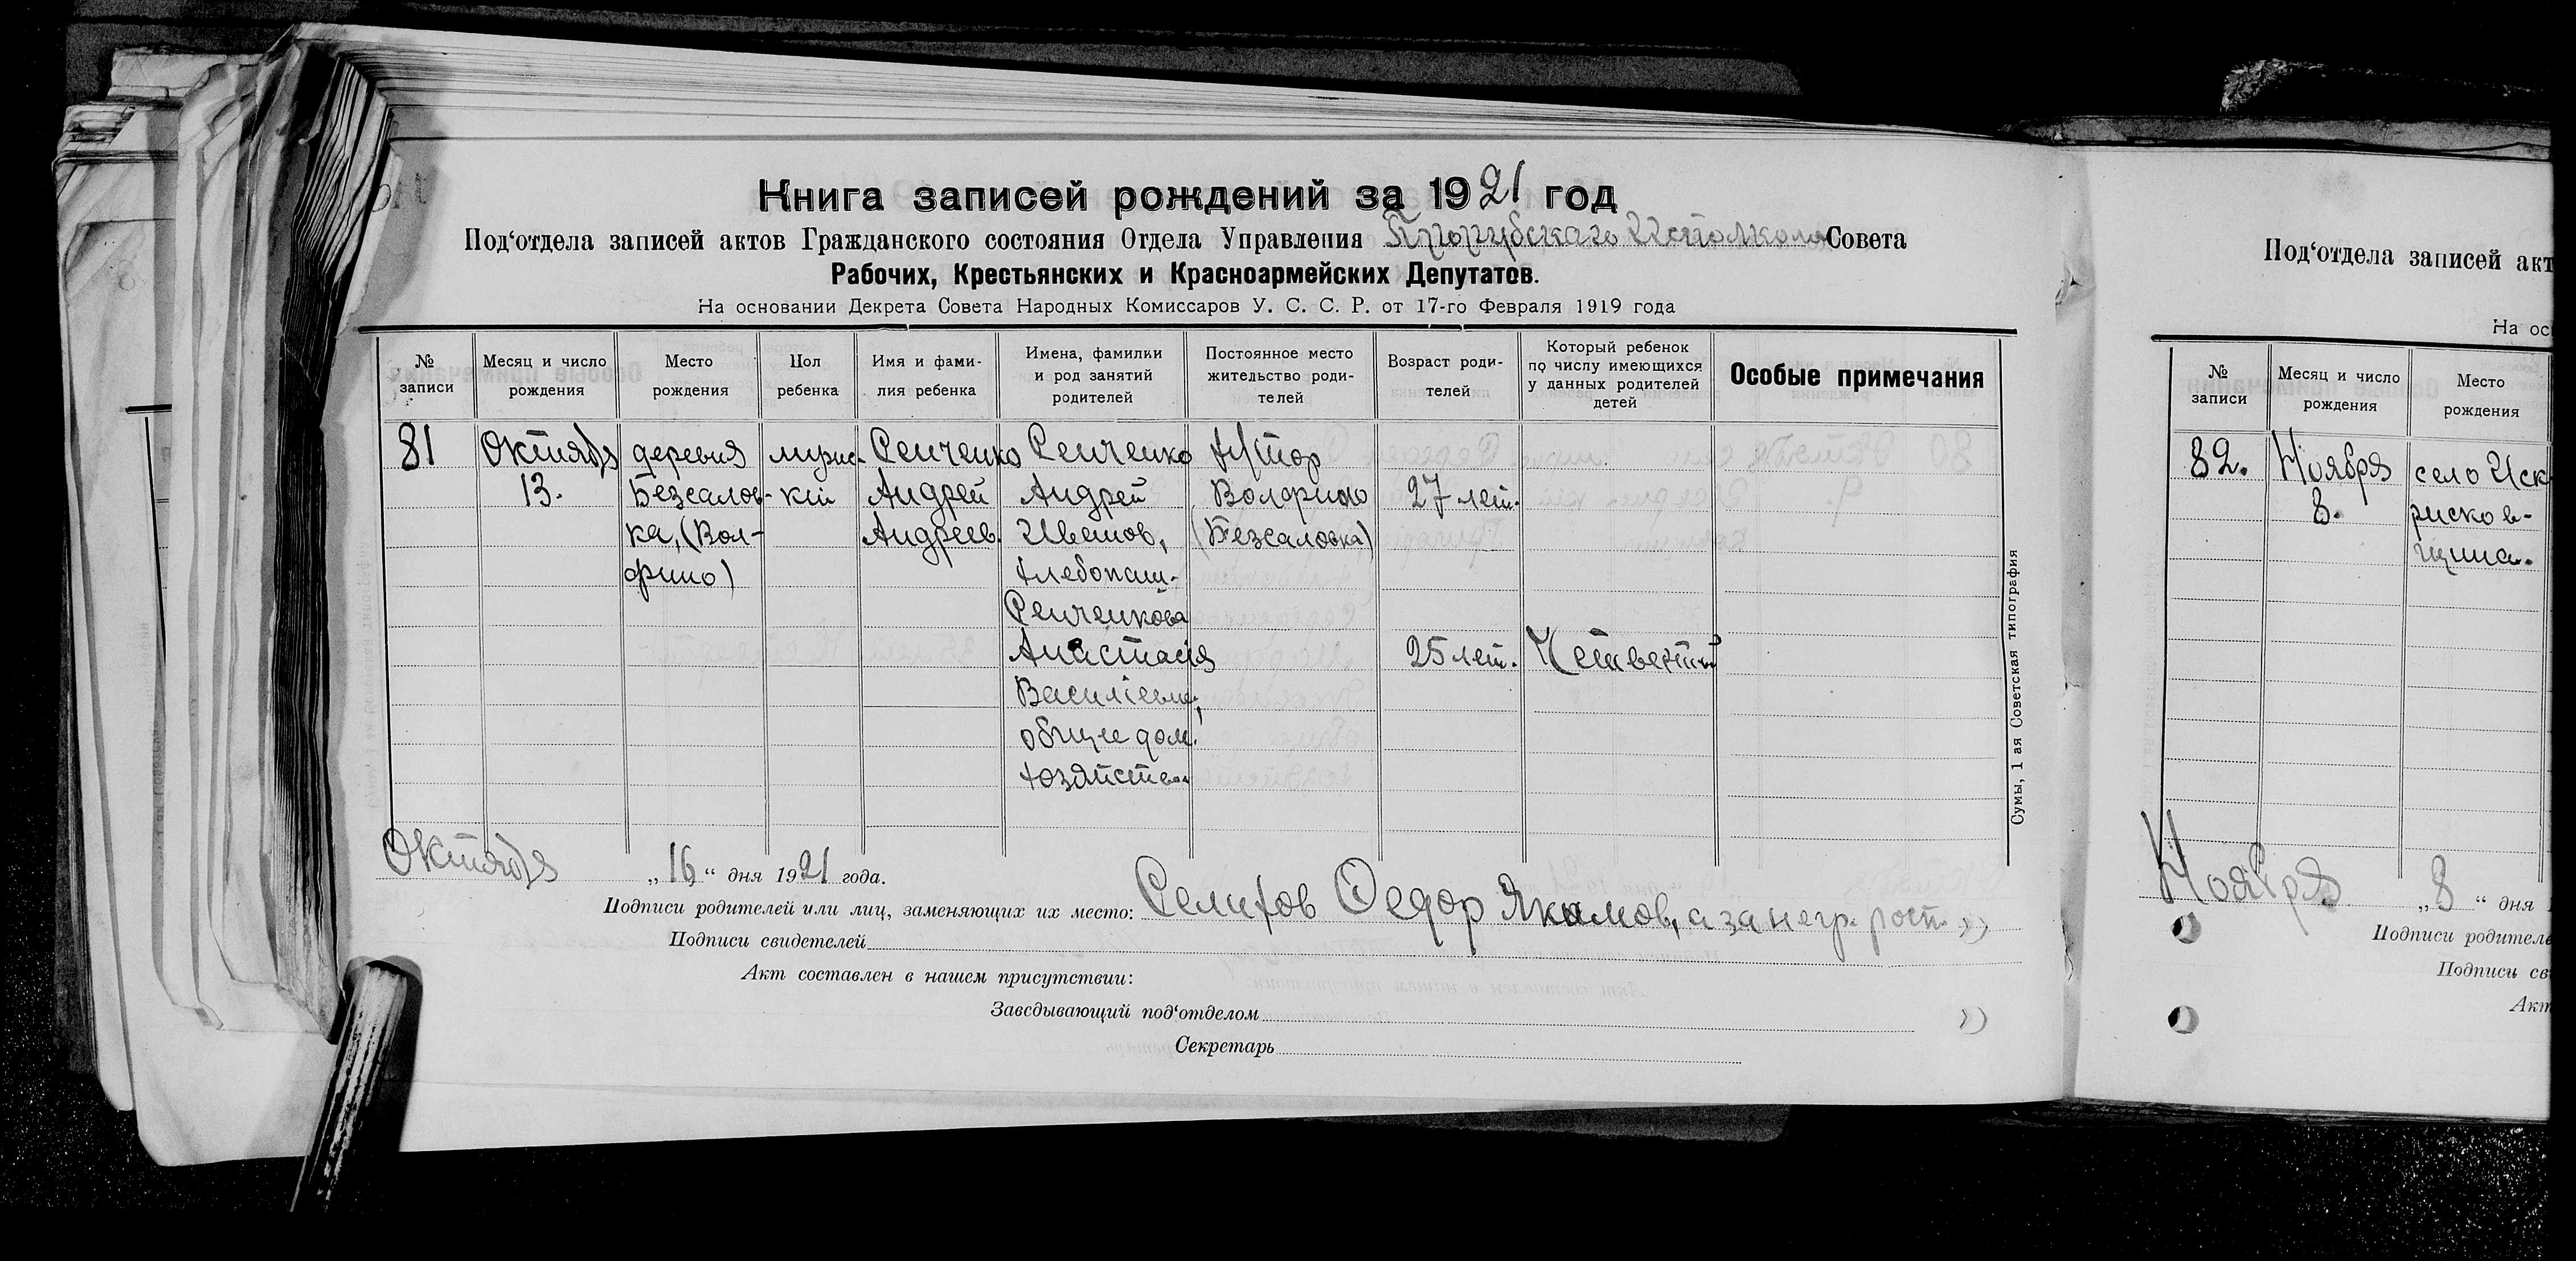 Книга записей рождений за 1921 год
Под‘отдела записей актов Гражданского состояния Отдела Управления Исполкома Совета
Рабочих, Крестьянских и Красноармейских Депутатов.
На основании Декрета Совета Народных Комиссаров У. С. С. Р. от 17-го Февраля 1919 года
№ записи
Месяц и число рождения
Место рождения
Пол ребенка
Имя и фами-
лия ребенка
Имена, фамилии
и род занятий
родителей
Постоянное место
жительство роди-
телей
Возраст роди-
телей
Который ребенок
по числу имеющихся
у данных родителей
детей
Особые примечания
81
Октября
13.
деревня
Безсалов-
ка, (Вол-
фино)
мужс-
кій
Сенченко
Андрей
Андреев.
Сенченко
Андрей
Иванов,
хлебопаш-
Сенченкова
Анастасія
Василіевна,
общее дом.
хозяйство
хутор
Волфино
(Безсаловка)
27 лет.
25 лет.
Четвертый
Сумы, 1 ая Советская типография
Октября „16“ дня 1921 года.
Подписи родителей или лиц, заменяющих их место: Селихов Федор Якимов, а за негр. рост.
Подписи свидетелей
Акт составлен в нашем присутствии:
Заведывающий под‘отделом
Секретарь
Под‘отдела записей акт
На ос
№ записи
Месяц и число рождения
Место рождения
82.
Ноября
8.
село Иск
рисков-
щина.
Ноября „8“ дня
Подписи родителе
Подписи св
Акт